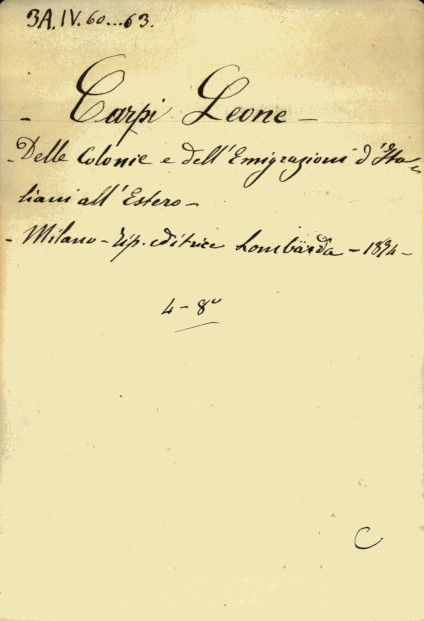 3A.IV.60...63.
- Carpi Leone -
- Delle Colonie e dell'Emigrazioni d'Ita-
liani all'Estero -
- Milano - Tip. editrice Lombarda - 1874 -
4 - 8º
C